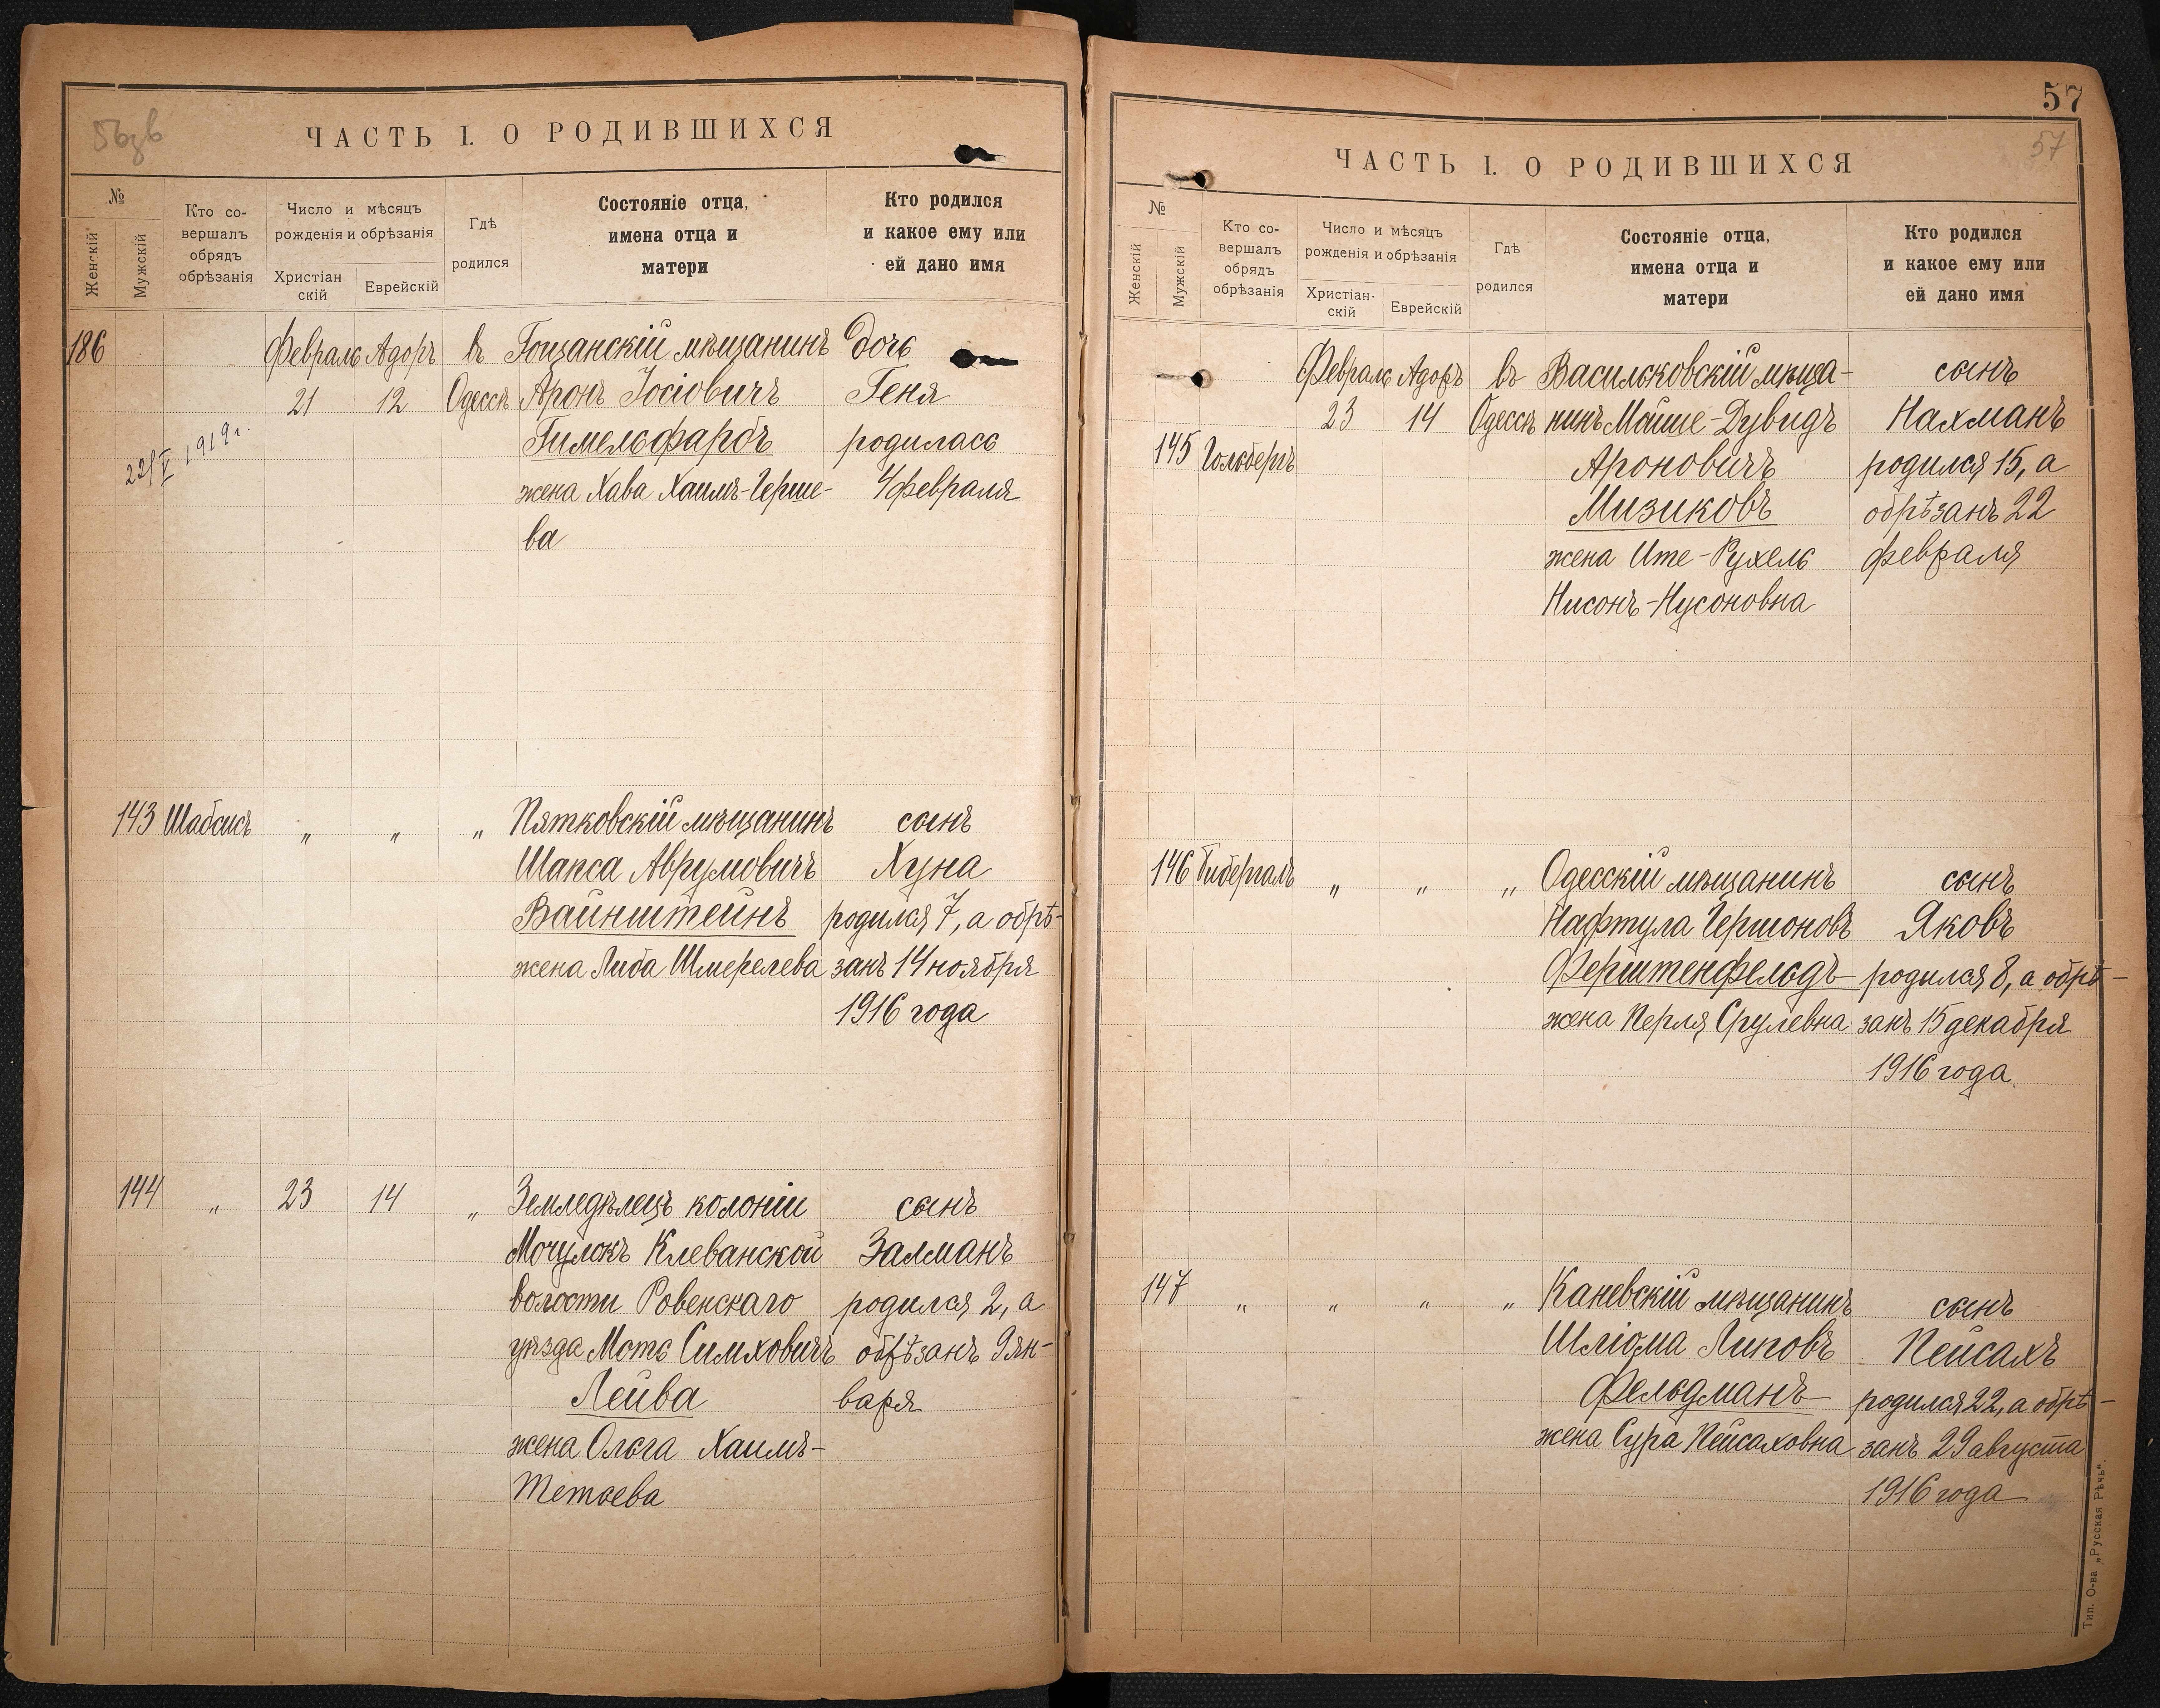 56зв
ЧАСТЬ I. О РОДИВШИХСЯ
№
Женскій
Мужскій
Кто со-
вершалъ
обрядъ
обрѣзанія
Число и мѣсяцъ
рожденія и обрѣзанія
Христіан
скій
Еврейскій
Гдѣ
родился
Состояніе отца,
имена отца и
матери
Кто родился
и какое ему или
ей дано имя
186 Февраль Адоръ въ Гощанскій мѣщанинъ дочь
21 12 Одессѣ Аронъ Іосіовичъ Геня
22/V 1919 г. Гимельфарбъ родилась
жена Хава Хаимъ-Герше- 4 февраля
ва
143 Шабсисъ „ „ „ Пятковскій мѣщанинъ сынъ
Шапса Аврумовичъ Хуна
Вайнштейнъ родился 7, а обрѣ-
жена Либа Шмерелева занъ 14 ноября
1916 года
144 „ 23 14 „ Земледѣлецъ колоніи сынъ
Мочулокъ Клеванской Залманъ
волости Ровенскаго родился 2, а
уѣзда Моть Симховичъ обрѣзанъ 9 ян-
Лейва варя
жена Ольга Хаимъ-
Тетьева
57
57
ЧАСТЬ I. О РОДИВШИХСЯ
№
Женскій
Мужскій
Кто со-
вершалъ
обрядъ
обрѣзанія
Число и мѣсяцъ
рожденія и обрѣзанія
Христіан-
скій
Еврейскій
Гдѣ
родился
Состояніе отца,
имена отца и
матери
Кто родился
и какое ему или
ей дано имя
Февраль Адоръ въ Васильковскій мѣща- сынъ
23 14 Одессѣ нинъ Мойше-Дувидъ Нахманъ
145 Гольбергъ Ароновичъ родился 15, а
Мизиковъ обрѣзанъ 22
жена Ите-Рухель февраля
Нисонъ-Нусоновна
146 Бибергалъ „ „ „ Одесскій мѣщанинъ сынъ
Нафтула Гершоновъ Яковъ
Ферштенфельдъ родился 8, а обрѣ-
жена Перля Срулевна занъ 15 декабря
1916 года
147 „ „ „ „ Каневскій мѣщанинъ сынъ
Шліома Липовъ Пейсахъ
Фельдманъ родился 22, а обрѣ-
жена Сура Пейсаховна занъ 29 августа
1916 года
Тип. О-ва „Русская Рѣчь“.